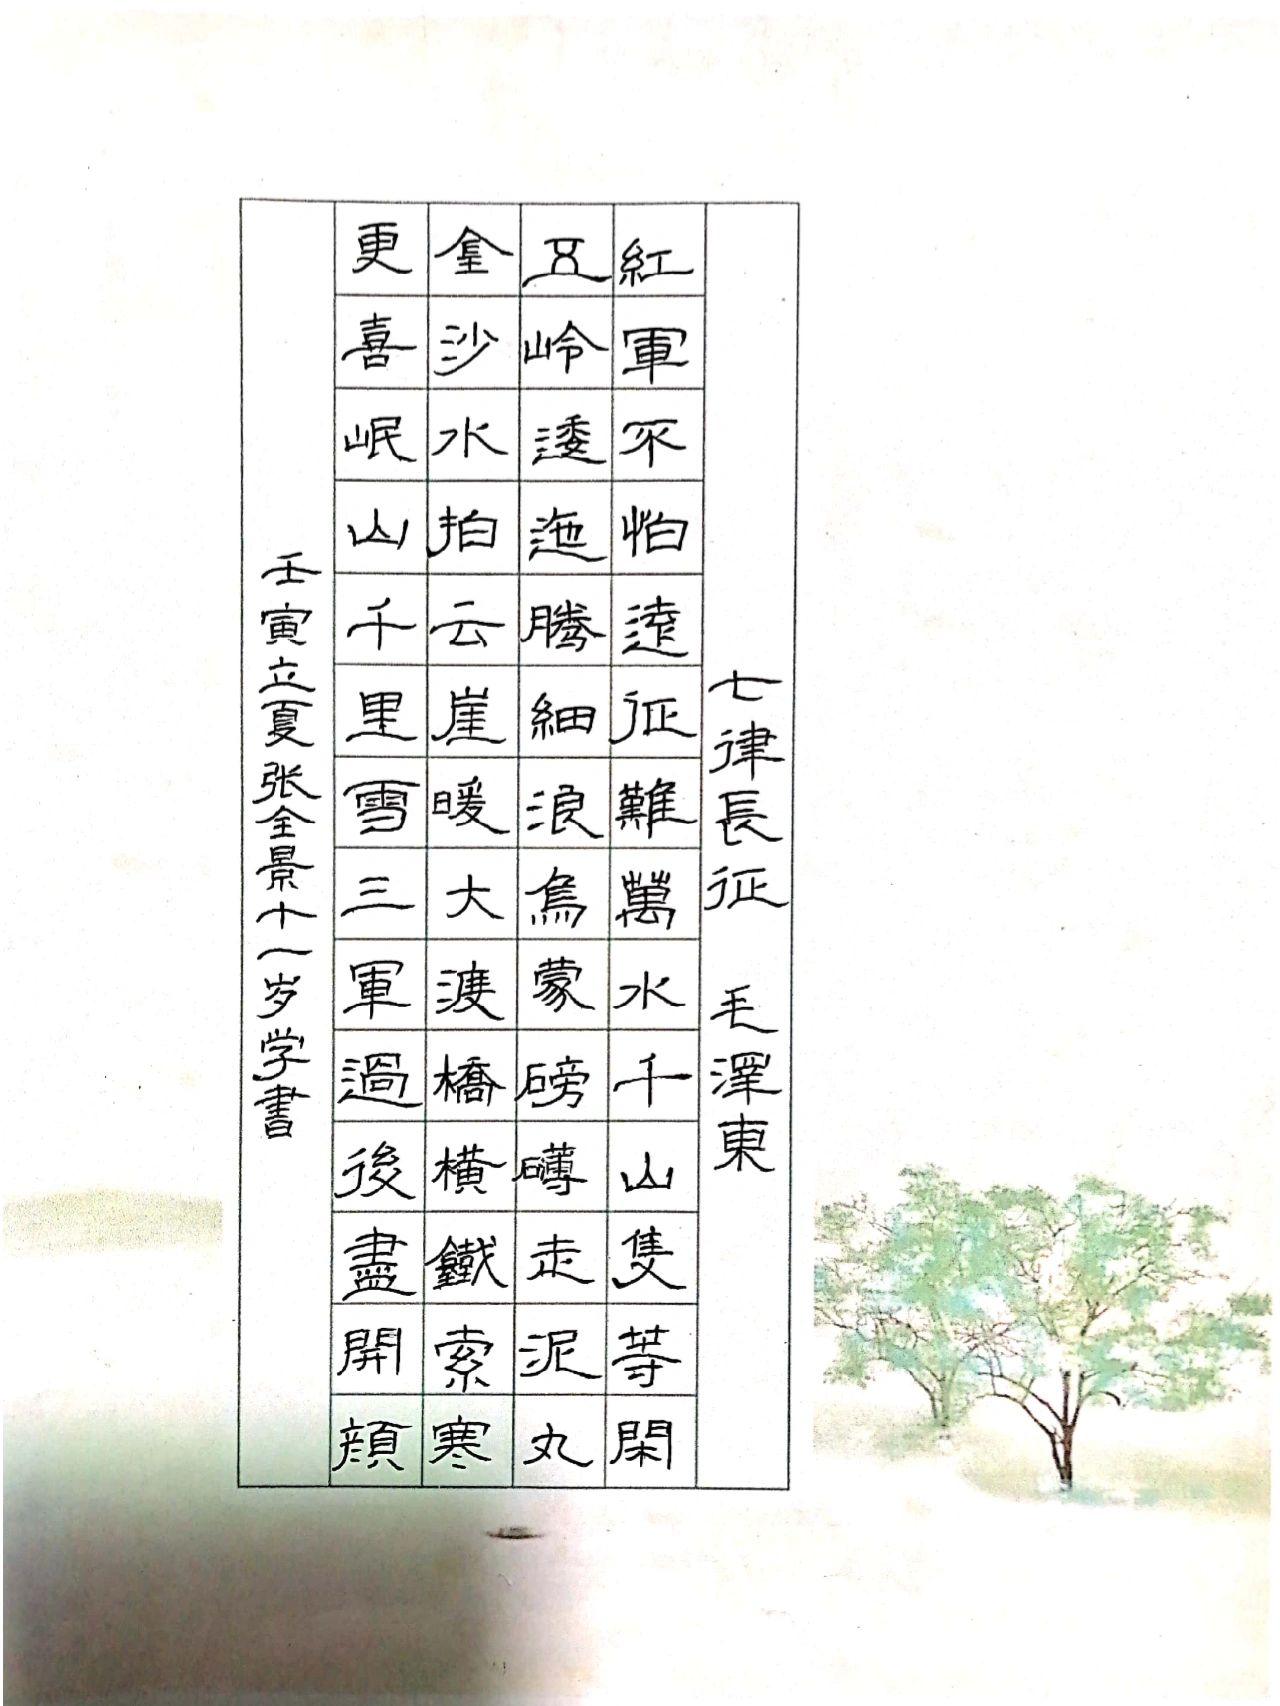 七律長征 毛澤東
紅軍不怕遠征難萬水千山隻等閑
五岭逶迤腾細浪烏蒙磅礴走泥丸
金沙水拍云崖暖大渡橋橫鐵索寒
更喜岷山千里雪三軍過後盡開顏
壬寅立夏张全景十一岁学書